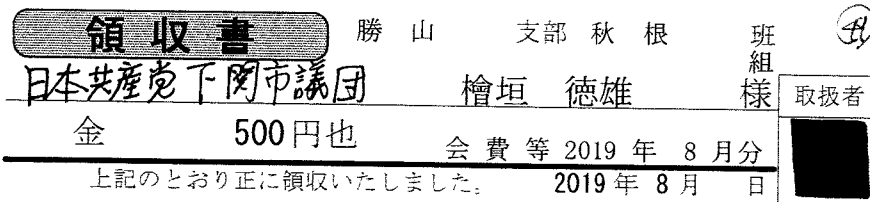 領収書 勝山 支部 秋根 班
組
日本共産党下関市議団 檜垣 徳雄 様 取扱者
金 500円也 会費等 2019年 8月分
上記のとおり正に領収いたしました。 2019年 8月 日